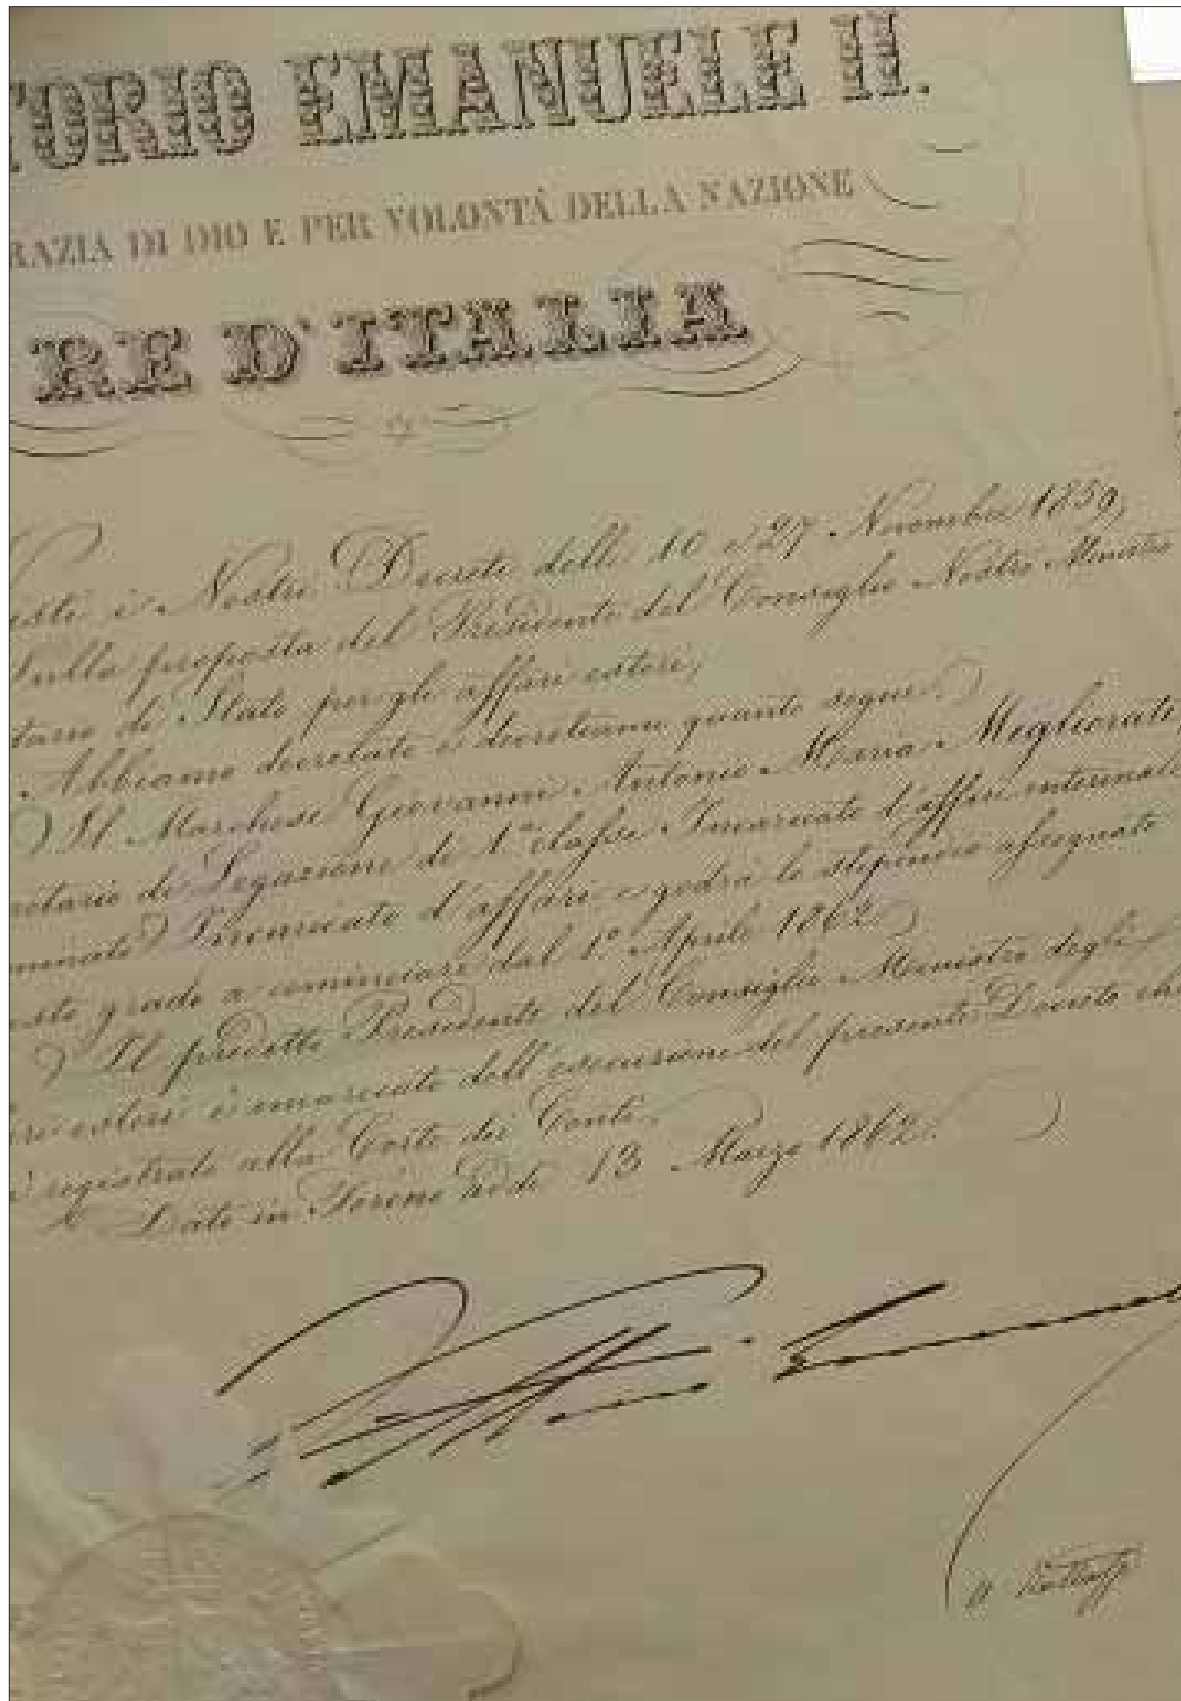 TORIO EMANUELE II.
RAZIA DI DIO E PER VOLONTÀ DELLA NAZIONE
RE D'ITALIA
isti i Nostri Decreti delli 10 e 27 Novembre 1859,
Sulla proposta del Presidente del Consiglio Nostro Ministro
tario di Stato per gli affari esteri,
Abbiamo decretato e decretiamo quanto segue
Il Marchese Giovanni Antonio Maria Migliorati,
retario di Legazione di 1a classe Incaricato d'affari interinale
minato Incaricato d'affari e godrà lo stipendio assegnato
esto grado a cominciare dal 1° Aprile 1862
Il predetto Presidente del Consiglio Ministro degli
ari esteri è incaricato dell'esecuzione del presente Decreto che
à registrato alla Corte dei Conti.
Dato in Torino addì 13 Marzo 1862.
U Rattazzi